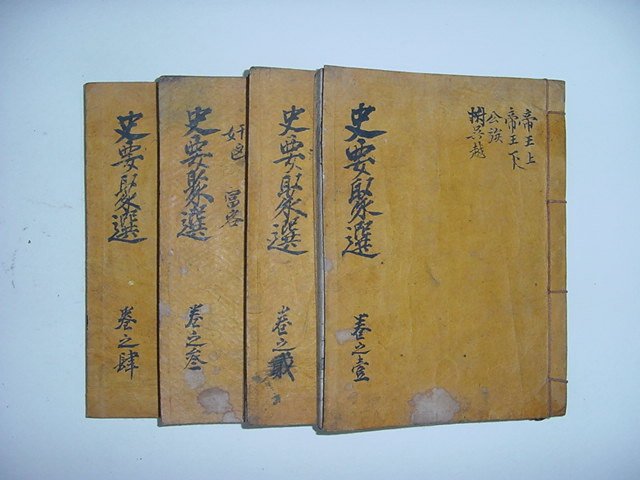 帝王上
帝王下
公族
附吳越
史要聚選
卷之壹
史要聚選
卷之貳
奸凶
富客
史要聚選
卷之叄
史要聚選
卷之肆